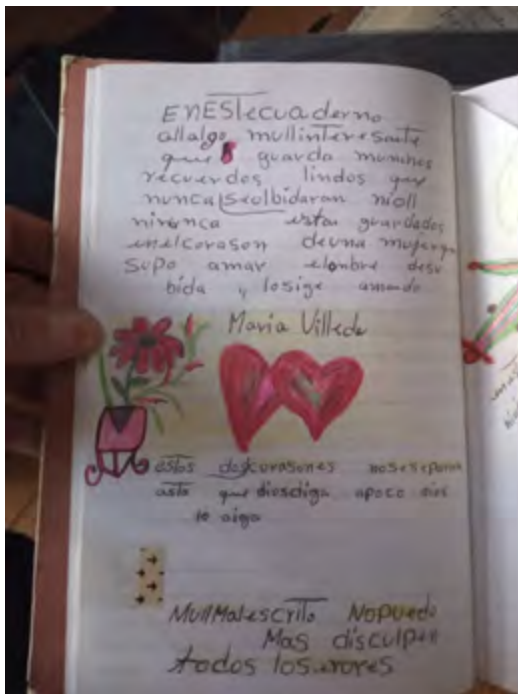 ENESTecuaderno
allalgo mullinteresante
que guarda munchos
recuerdos lindos que
nunca seolbidaran nioll
ninunca estan guardados
enelcorason deuna mujerqu
supo amar elombre desu
bida y losige amando
Maria Villeda
estos doscorasones noseseparan
asta que diosdiga apoco dios
lo aiga
MullMalescrito NoPuedo
Mas disculpen
todos loserores